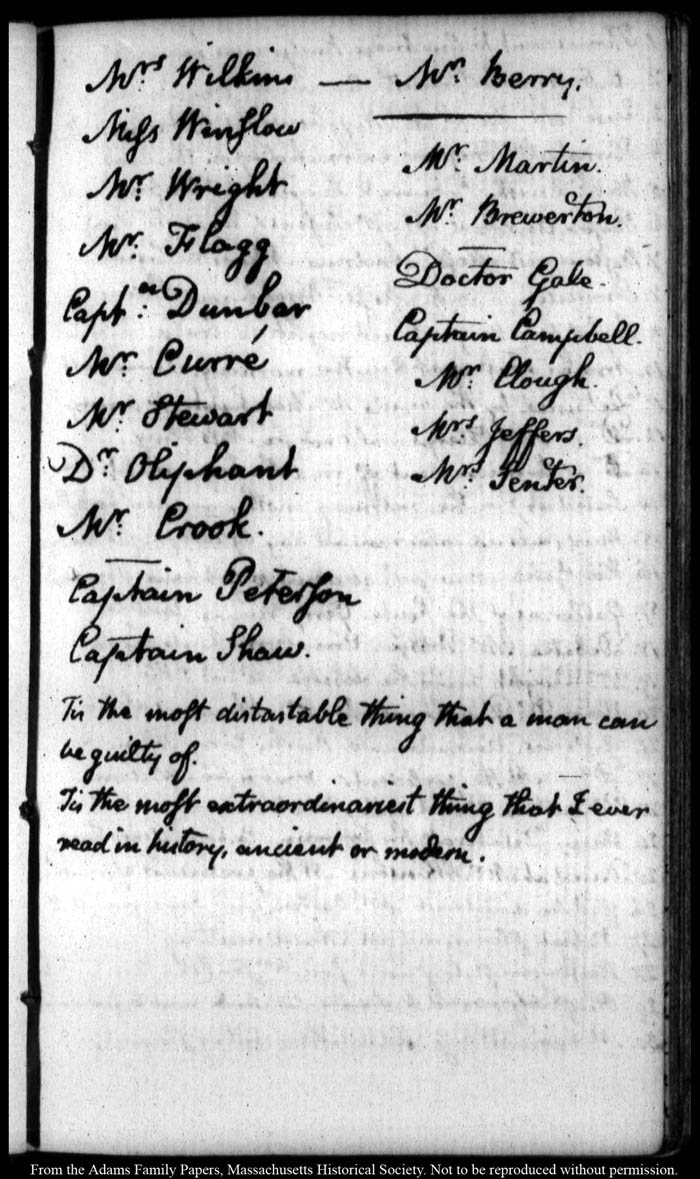 Mrs Wilkins — Mr. Berry.
Miss Winslow
Mr. Wright
Mr. Flagg
Captn. Dunbar
Mr. Curré
Mr. Stewart
Dr. Oliphant
Mr. Crook.
Captain Peterson
Captain Shaw.
Mr. Martin.
Mr. Brewerton.
Doctor Gale.
Captain Campbell.
Mr. Clough.
Mrs Jeffers.
Mrs Fenter.
Tis the most distastable thing that a man can
be guilty of.
Tis the most extraordinariest thing that I ever
read in history, ancient or modern.
From the Adams Family Papers, Massachusetts Historical Society. Not to be reproduced without permission.